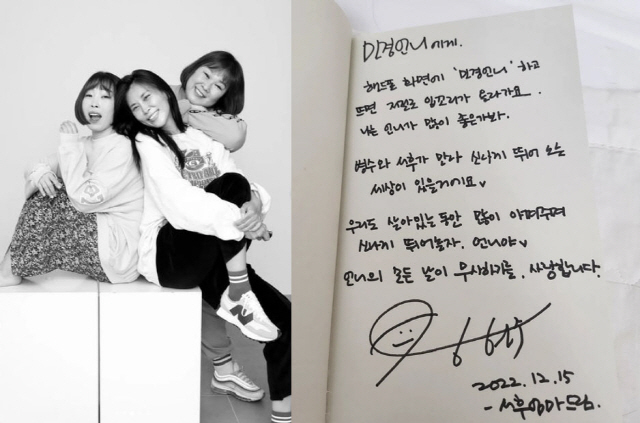 민경언니에게.
핸드폰 화면에 '민경언니' 하고
뜨면 저절로 입꼬리가 올라가요.
나는 언니가 많이 좋은가봐.
병수와 서후가 만나 신나게 뛰어 노는
세상이 있을거예요
우리도 살아있는 동안 많이 아껴주며
신나게 뛰어놀자. 언니야
언니의 모든 날이 무사하기를. 사랑합니다.
2022. 12. 15
- 서후엄마 드림.